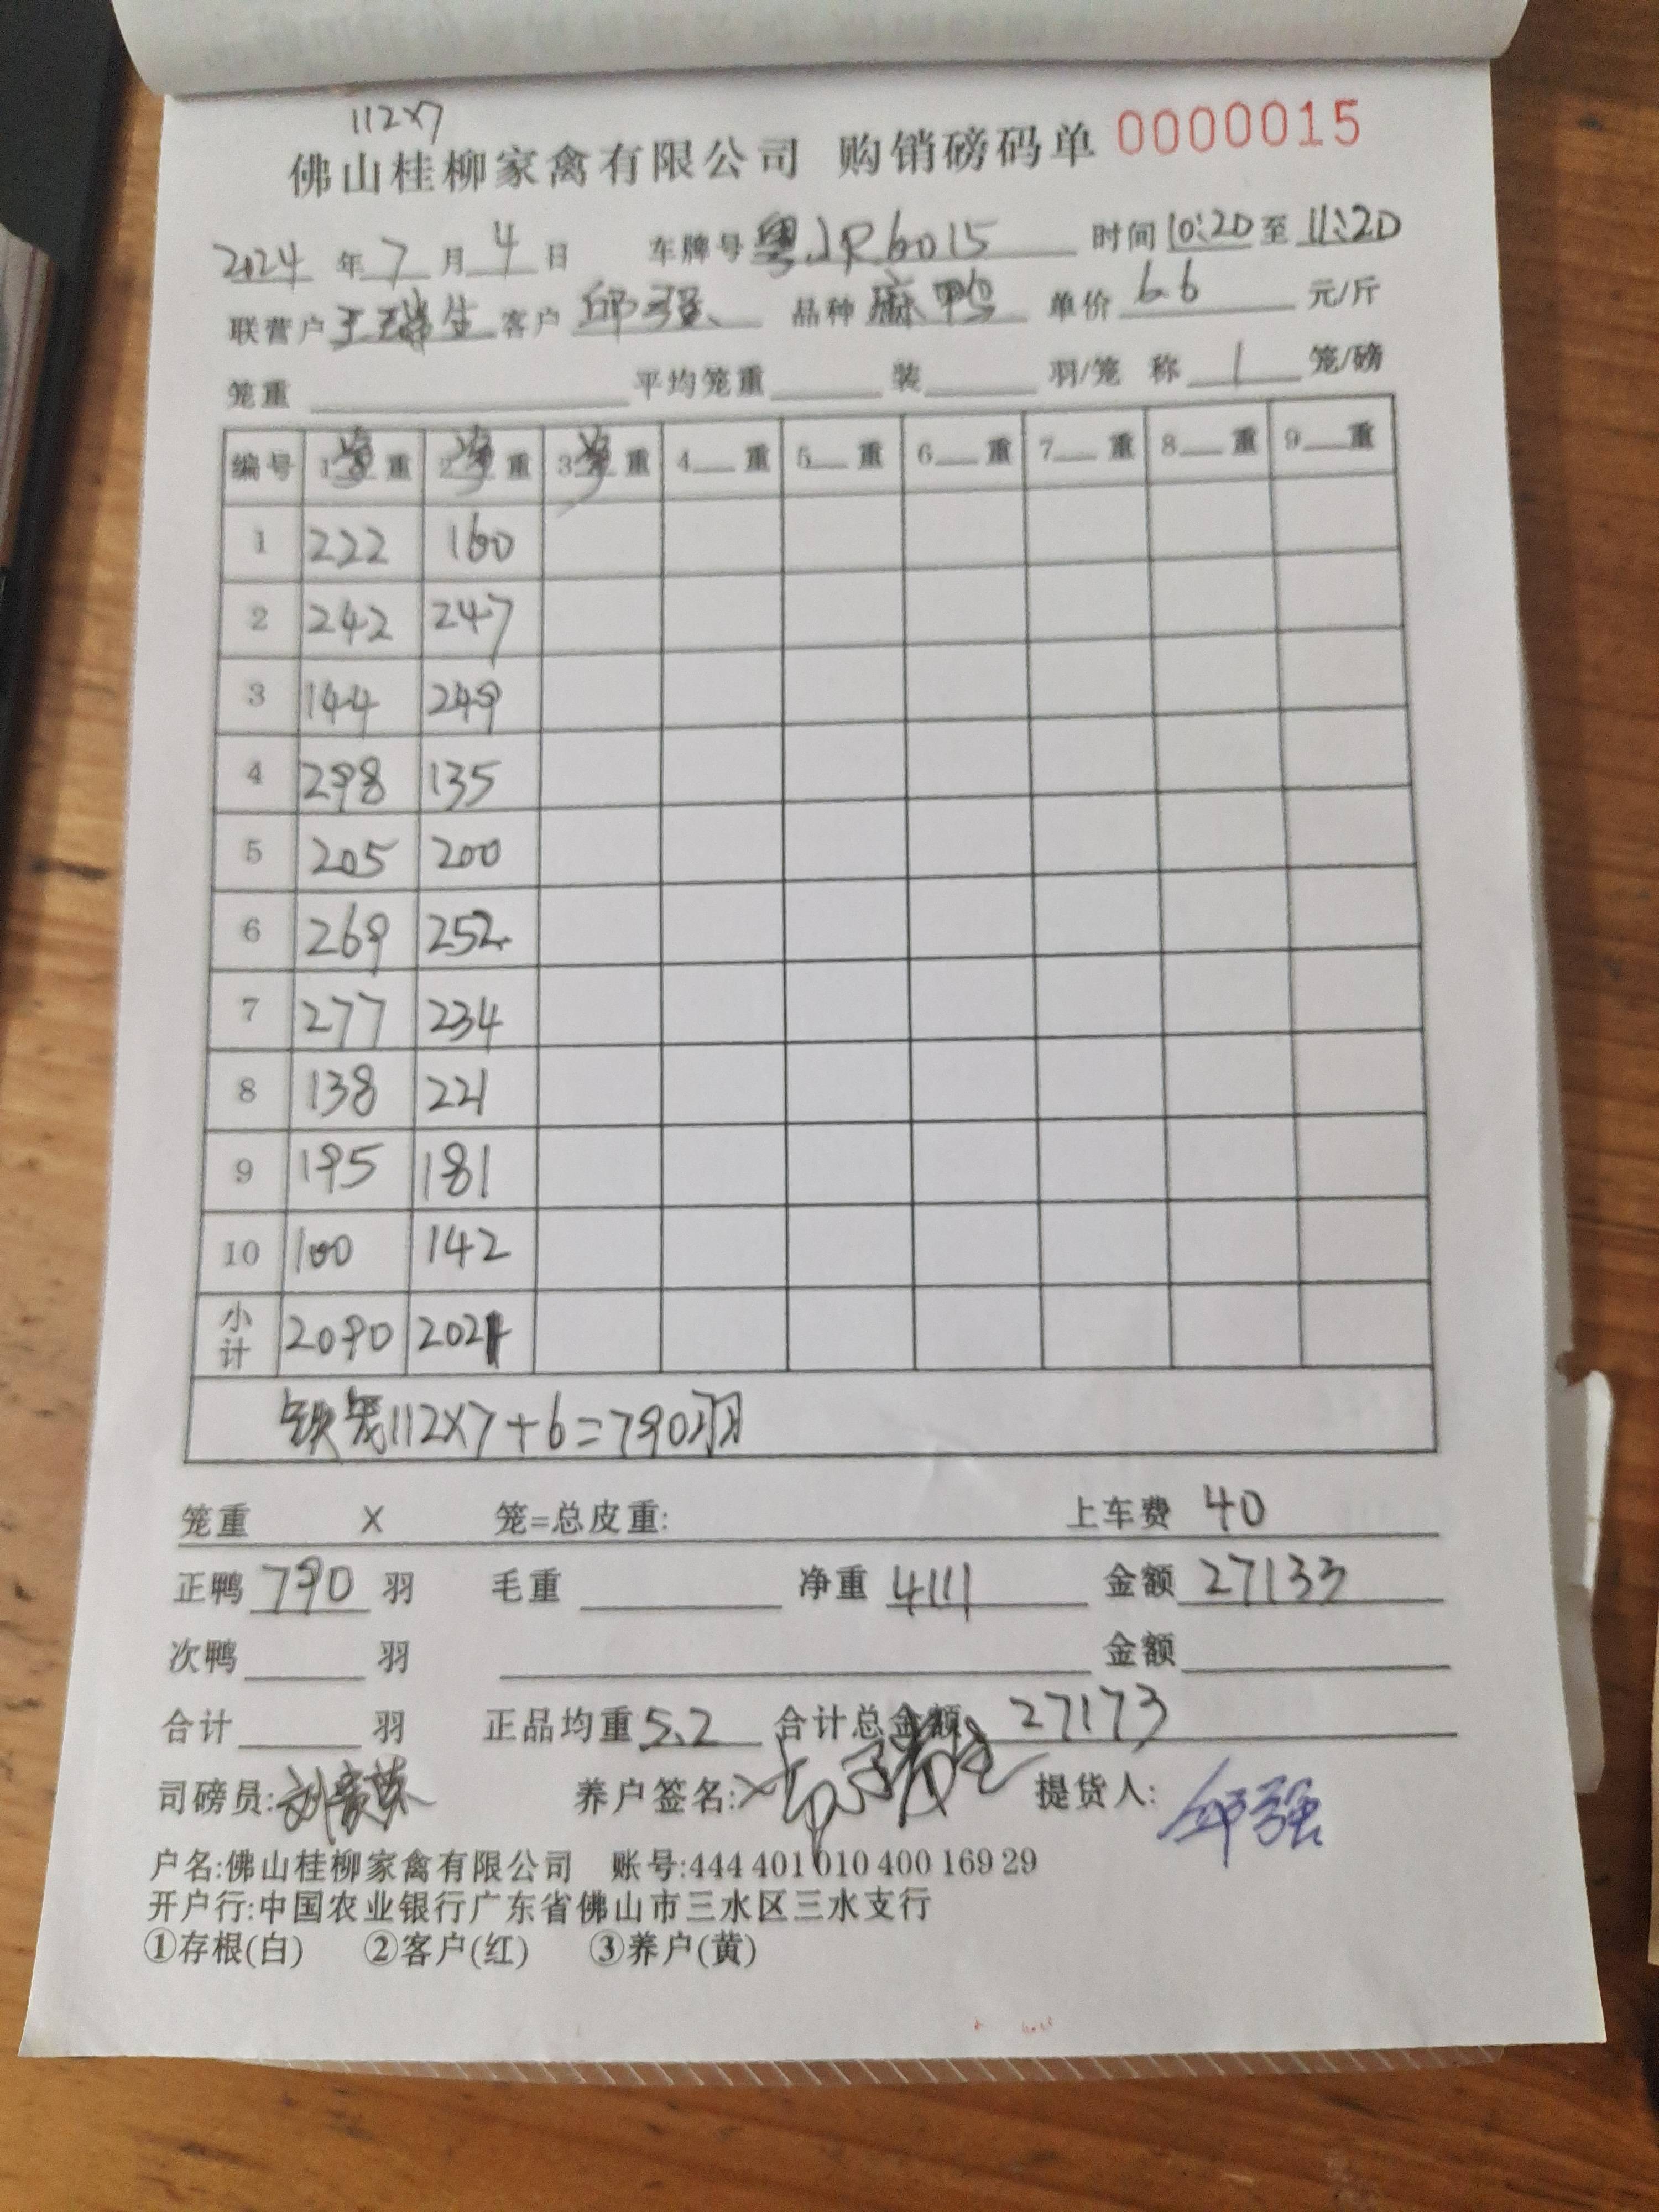 112×7
佛山桂柳家禽有限公司 购销磅码单 0000015
2024 年 7 月 4 日 车牌号 粤JR6015 时间 10:20 至 11:20
联营户 王瑞生 客户 邱强 品种 麻鸭 单价 6.6 元/斤
笼重 平均笼重 装 羽/笼 称 1 笼/磅
编号 1净重 2净重 3净重 4 重 5 重 6 重 7 重 8 重 9 重
1 222 160
2 242 247
3 144 249
4 298 135
5 205 200
6 269 252
7 277 234
8 138 221
9 195 181
10 100 142
小计 2090 2021
铁笼112×7+6=790羽
笼重 X 笼=总皮重: 上车费 40
正鸭 790 羽 毛重 净重 4111 金额 27133
次鸭 羽 金额
合计 羽 正品均重 5.2 合计总金额 27173
司磅员: 养户签名: 提货人: 邱强
户名:佛山桂柳家禽有限公司 账号:444 401 010 400 169 29
开户行:中国农业银行广东省佛山市三水区三水支行
①存根(白) ②客户(红) ③养户(黄)